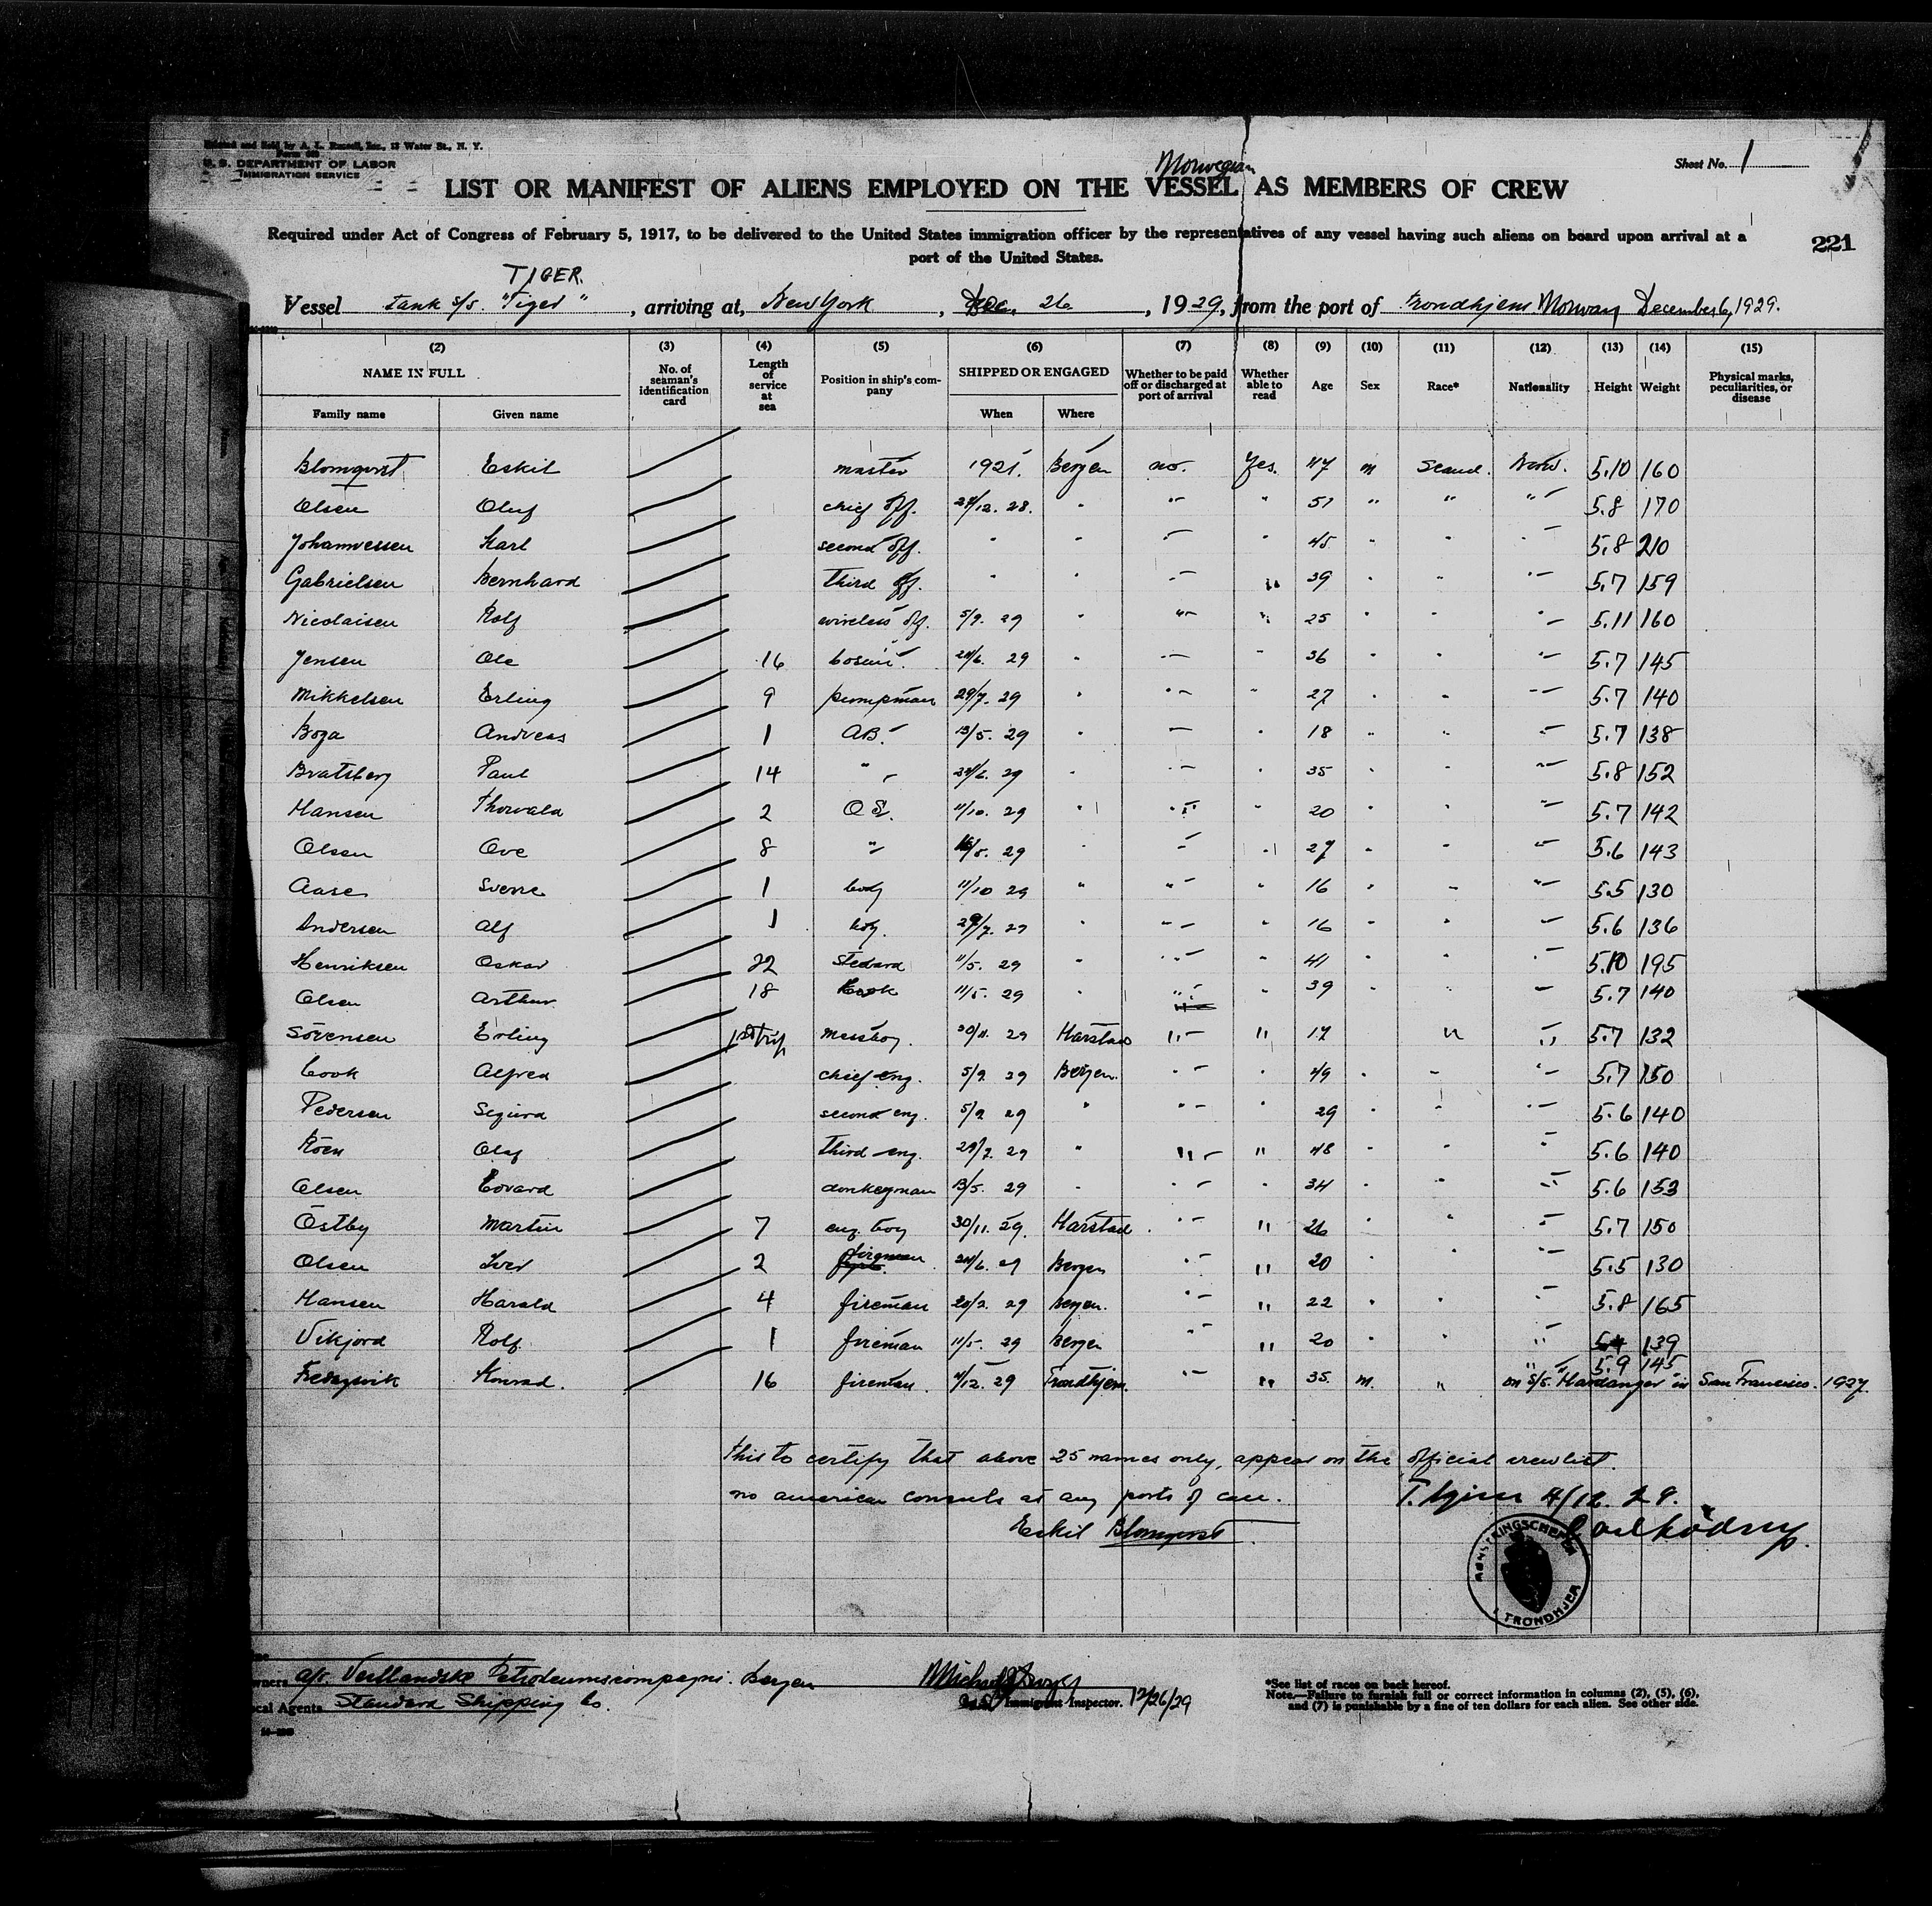 Printed and Sold by A. L. Russell, Inc., 13 Water St., N. Y.
U. S. DEPARTMENT OF LABOR
IMMIGRATION SERVICE
Sheet No. 1
Norwegian
LIST OR MANIFEST OF ALIENS EMPLOYED ON THE VESSEL AS MEMBERS OF CREW
Required under Act of Congress of February 5, 1917, to be delivered to the United States immigration officer by the representatives of any vessel having such aliens on board upon arrival at a
port of the United States.
221
TIGER.
Vessel tank s/s. "Tiger", arriving at, New York, Dec. 26, 1929, from the port of Trondhjem Norway December 6, 1929.
(2) (3) (4) (5) (6) (7) (8) (9) (10) (11) (12) (13) (14) (15)
NAME IN FULL No. of seaman's identification card Length of service at sea Position in ship's company SHIPPED OR ENGAGED Whether to be paid off or discharged at port of arrival Whether able to read Age Sex Race* Nationality Height Weight Physical marks, peculiarities, or disease
Family name Given name When Where
Blomqvist Eskil master 1921. Bergen no. Yes. 47 m Scand. Norw. 5.10 160
Olsen Oluf chief off. 28. " " " 51 " " " 5.8 170
Johannessen Karl second off. " " " " 45 " " " 5.8 210
Gabrielsen Bernhard third off. " " " " 39 " " " 5.7 159
Nicolaisen Rolf wireless off. 5/9. 29 " " " 25 " " " 5.11 160
Jensen Ole 16 bosun. 29 " " " 36 " " " 5.7 145
Mikkelsen Erling 9 pumpman 29/7. 29 " " " 27 " " " 5.7 140
Boga Andreas 1 AB. 13/5. 29 " " " 18 " " " 5.7 138
Bratsberg Paul 14 " 29 " " " 35 " " " 5.8 152
Hansen Thorvald 2 O S. 11/10. 29 " " " 20 " " " 5.7 142
Olsen Ove 8 " 29 " " " 27 " " " 5.6 143
Aase Sverre 1 boy 11/10 29 " " " 16 " " " 5.5 130
Andersen Alf 1 boy. 29/7. " " " 16 " " " 5.6 136
Henriksen Oskar 22 Steward 11/5. 29 " " " 41 " " " 5.10 195
Olsen Arthur 18 Cook 11/5. 29 " " " 39 " " " 5.7 140
Sörensen Erling 1st trip messboy. 30/11. 29 Harstad " " 17 " " 5.7 132
Cook Alfred chief eng. 5/9 29 Bergen. " " 49 " " " 5.7 150
Pedersen Sigurd second eng. 5/9 29 " " " 29 " " " 5.6 140
Roen Olaf third eng. 29/7. 29 " " " 48 " " " 5.6 140
Olsen Edvard donkeyman 13/5. 29 " " " 34 " " " 5.6 153
Östby Martin 7 eng. boy 30/11. 29. Harstad " " 26 " " " 5.7 150
Olsen Iver 2 fireman 29 Bergen " " 20 " " " 5.5 130
Hansen Harald 4 fireman 20/2. 29 Bergen. " " 22 " " " 5.8 165
Vikjord Rolf 1 fireman 11/5. 29 Bergen " " 20 " " " 5.4 139
5.9 145
Konrad. 16 fireman. 4/12. 29 Trondhjem. " " 35. m. " on S/S. "Hardanger" in San Francisco. 1927.
this to certify that above 25 names only, appear on the official crewlist.
no american consuls at any ports of call.
Eskil Blomqvist.
T.hjem 4/12. 29.
MØNSTRINGSCHEFEN I TRONDHJEM
Owners a/s. Vestlandske Petroleumscompagni. Bergen
Local Agents Standard Shipping Co.
Immigrant Inspector. 12/26/29
*See list of races on back hereof.
Note.—Failure to furnish full or correct information in columns (2), (5), (6),
and (7) is punishable by a fine of ten dollars for each alien. See other side.